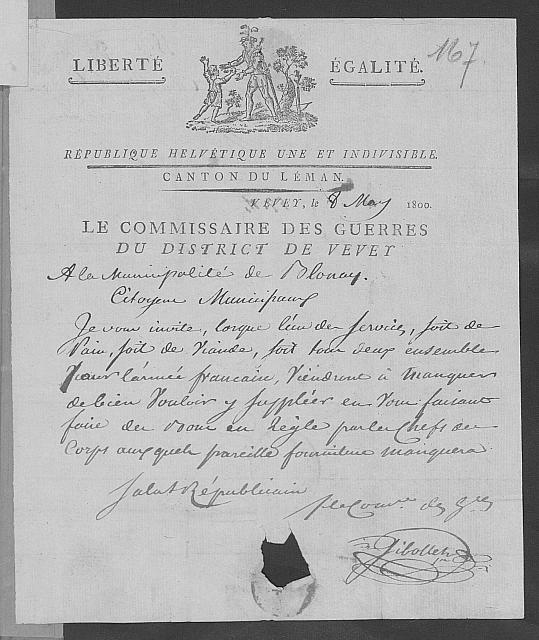 167
LIBERTÉ ÉGALITÉ.
RÉPUBLIQUE HELVÉTIQUE UNE ET INDIVISIBLE.
CANTON DU LÉMAN.
VEVEY, le 8 May 1800.
LE COMMISSAIRE DES GUERRES
DU DISTRICT DE VEVEY
A la Municipalité de Blonay.
Citoyens Municipaux
Je vous invite, lorque l'un des services, soit de
Pain, soit de Viande, soit tous deux ensemble
pour l'armée francaise, Viendront à manquer
de bien Vouloir y supplèer en Vous faisant
faire des Bons en Règle par les Chefs des
Corps auxquels pareille fourniture manquera
Salut Républicain
le Comre. des Gres